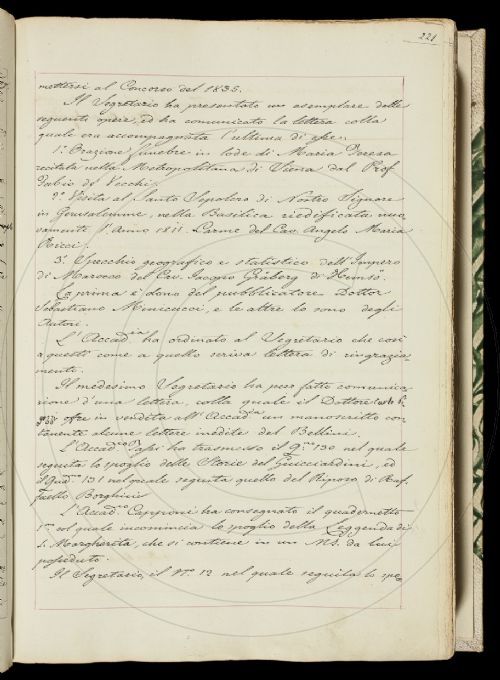 221
mettersi al Concorso del 1835.
Il Segretario ha presentato un esemplare delle
seguenti opere, ed ha comunicata la lettera colla
quale era accompagnata l'ultima di esse.
1.° Orazione funebre in lode di Maria Teresa
recitata nella Metropolitana di Vienna dal Prof.
Fabio de' Vecchj.
2.° Visita al Santo Sepolcro di Nostro Signore
in Gerusalemme, nella Basilica riedificata nuo
vamente l'Anno 1811. Carme del Cav. Angelo Maria
Ricci.
3.° Specchio geografico e statistico dell'Impero
di Marocco del Cav. Jacopo Gråberg di Hemsö.
La prima è dono del pubblicatore Dottor
Sebastiano e le altre lo sono degli
Autori.
L'Accad.ia ha ordinato al Segretario che così
a questi come a quello scriva lettera di ringrazia-
mento.
Il medesimo Segretario ha pure fatta comunica
zione d'una lettera, colla quale il Dottore
offre in vendita all'Accad.ia un manoscritto con
tenente alcune lettere inedite del Bellini.
L'Accad.co ha trasmesso il q.no 130 nel quale
seguita lo spoglio delle Storie del Guicciardini, ed
il Quad.no 131 nel quale seguita quello del Riposo di Raf
faello Borghini.
L'Accad.co Capponi ha consegnato il quadernetto
1.mo col quale incomincia lo spoglio della Leggenda di
S. Margherita, che si contiene in un MS. da lui
posseduto.
Il Segretario, il N.° 12 nel quale seguita lo spo